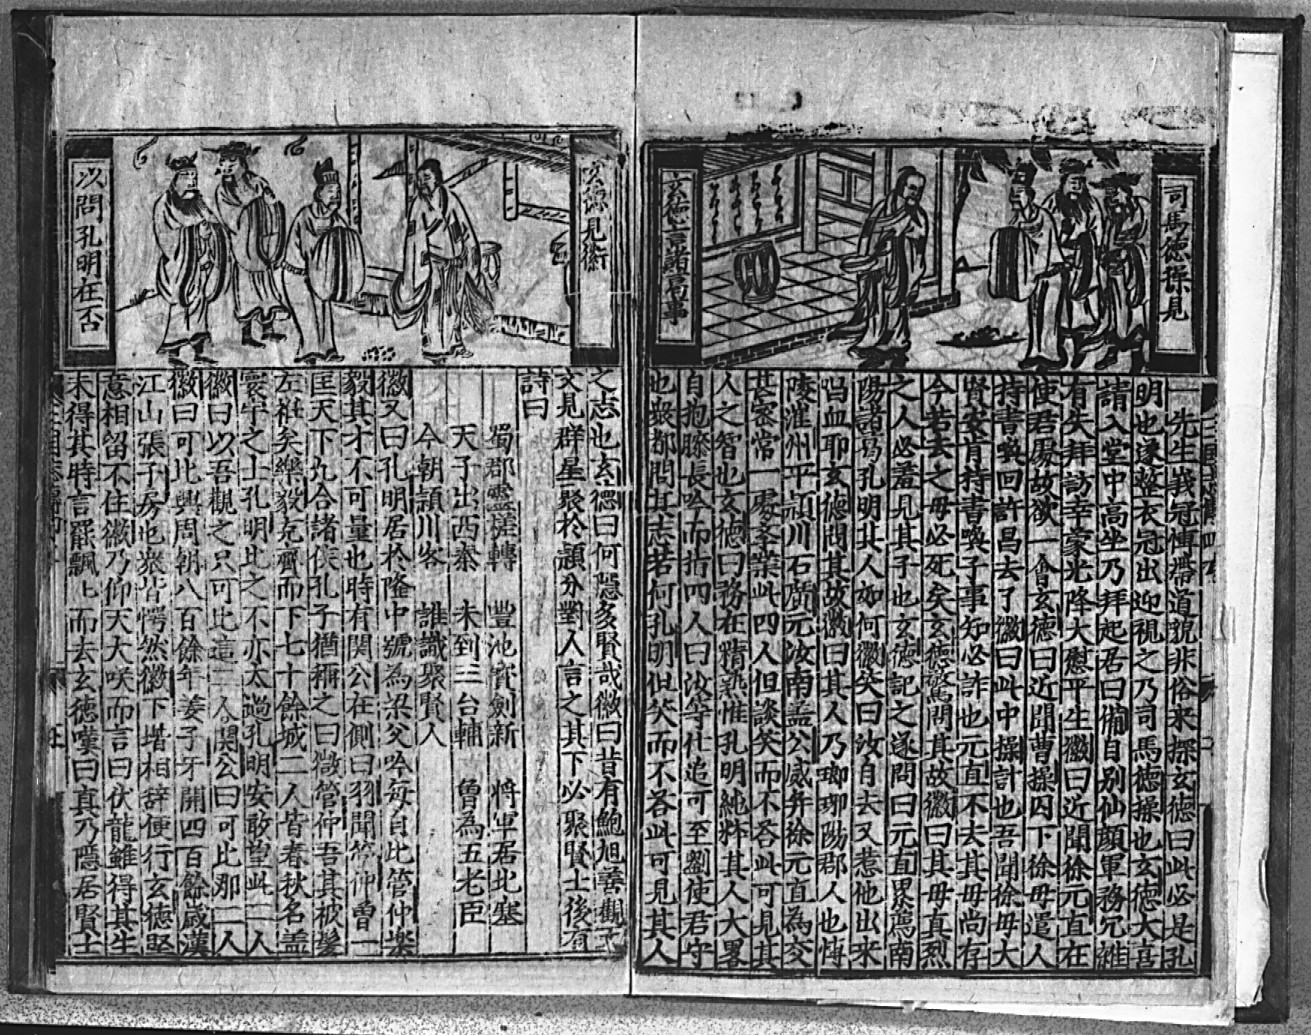 司馬德操見
玄德言諸葛事
一先生峩冠博帶道貌非俗來探玄德曰此必是孔
明也遂整衣冠出迎視之乃司馬德操也玄德大喜
請入堂中高坐乃拜起居曰備自別仙顔軍務冗雜
有失拜訪幸蒙光降大慰平生徽曰近聞徐元直在
使君處故欲一會玄德曰近聞曹操囚下徐母遣人
持書喚回許昌去了徽曰此中操計也吾聞徐母大
賢安肯持書喚子事知必詐也元直不去其母尚存
今若去之母必死矣玄德驚問其故徽曰其母真烈
之人必羞見其子也玄德記之遂問曰元直舉薦南
陽諸葛孔明其人如何徽笑曰汝自去又惹他出來
嘔血耶玄德問其故徽曰其人乃瑯琊陽郡人也
陵崔州平潁川石廣元汝南孟公威并徐元直為交
甚密常一處丟業此四人但談笑而不答此可見其
人之智也玄德曰務在精熟惟孔明純粹其人大畧
自抱膝長吟而指四人曰汝等仕進可至劉使君守
也衆都問其志若何孔明但笑而不答此可見其人
見徽
以問孔明在否
之志也玄德曰何隱多賢哉徽曰昔有鮑旭善觀天
文見群星聚於潁分對人言之其下必聚賢士後有
詩曰
蜀郡靈槎轉 豐池寶劍新 將軍居北塞
天子出西秦 未到三台輔 魯為五老臣
今朝潁川客 誰識聚賢人
徽又曰孔明居於隆中號為梁父吟每自比管仲樂
毅其才不可量也時有関公在側曰羽聞管仲曾一
匡天下九合諸侯孔子猶稱之曰微管仲吾其被髮
左衽矣樂毅克齊而下七十餘城二人皆春秋名盖
寰宇之士孔明比之不亦太過孔明安敢望此二人
徽曰以吾觀之只可比這二人関公曰可比那二人
徽曰可比興周朝八百餘年姜子牙開四百餘歲漢
江山張子房也衆皆愕然徽下堦相辭便行玄德堅
意相留不住徽乃仰天大咲而言曰伏龍雖得其主
未得其時言罷飄上而去玄德嘆曰真乃隱居賢士